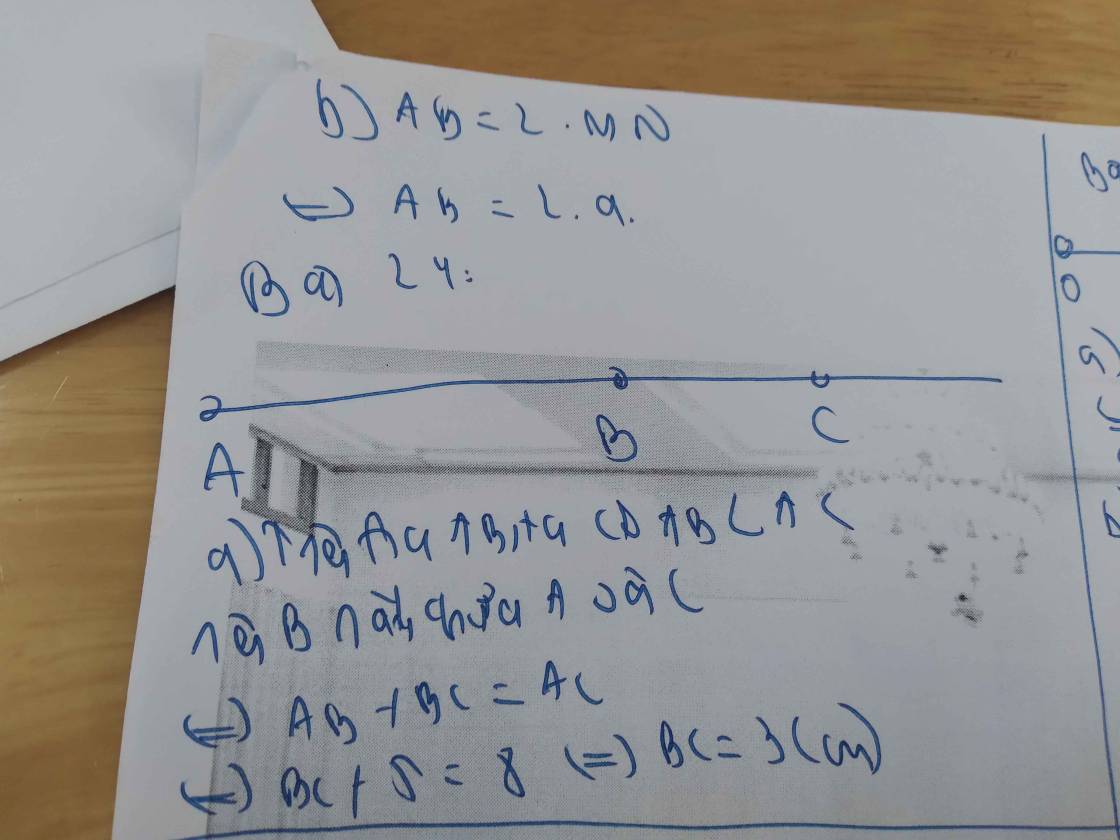 b) AB = 2 . MN
<=> AB = 2.a.
Bài 24:
A B C
a) Trên tia AB, ta có AB < AC
nên B nằm giữa A và C
<=> AB + BC = AC
<=> BC + 5 = 8 <=> BC = 3 (cm)
Bà
O
a)